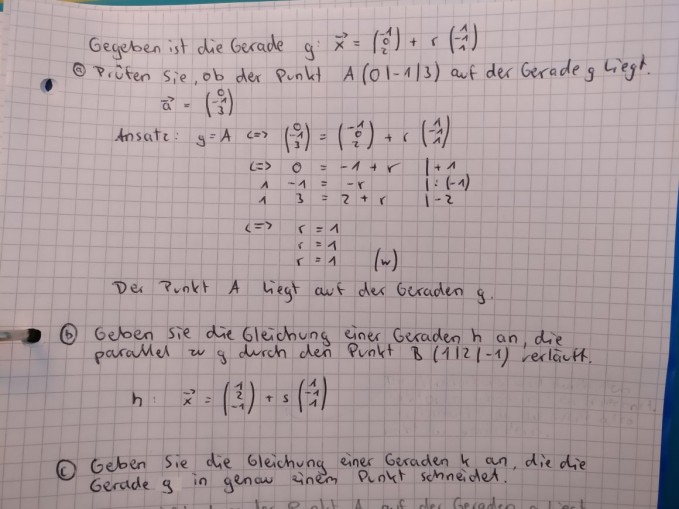 Gegeben ist die Gerade g: x⃗ = (-1 0 2) + r (1 -1 1)
ⓐ Prüfen Sie, ob der Punkt A (0|-1|3) auf der Gerade g liegt.
a⃗ = (0 -1 3)
Ansatz: g = A <=> (0 -1 3) = (-1 0 2) + r (1 -1 1)
<=> 0 = -1 + r |+1
1 -1 = -r |:(-1)
1 3 = 2 + r |-2
<=> r = 1
r = 1
r = 1 (w)
Der Punkt A liegt auf der Geraden g.
ⓑ Geben Sie die Gleichung einer Geraden h an, die
parallel zu g durch den Punkt B (1|2|-1) verläuft.
h: x⃗ = (1 2 -1) + s (1 -1 1)
ⓒ Geben Sie die Gleichung einer Geraden k an, die die
Gerade g in genau einem Punkt schneidet.